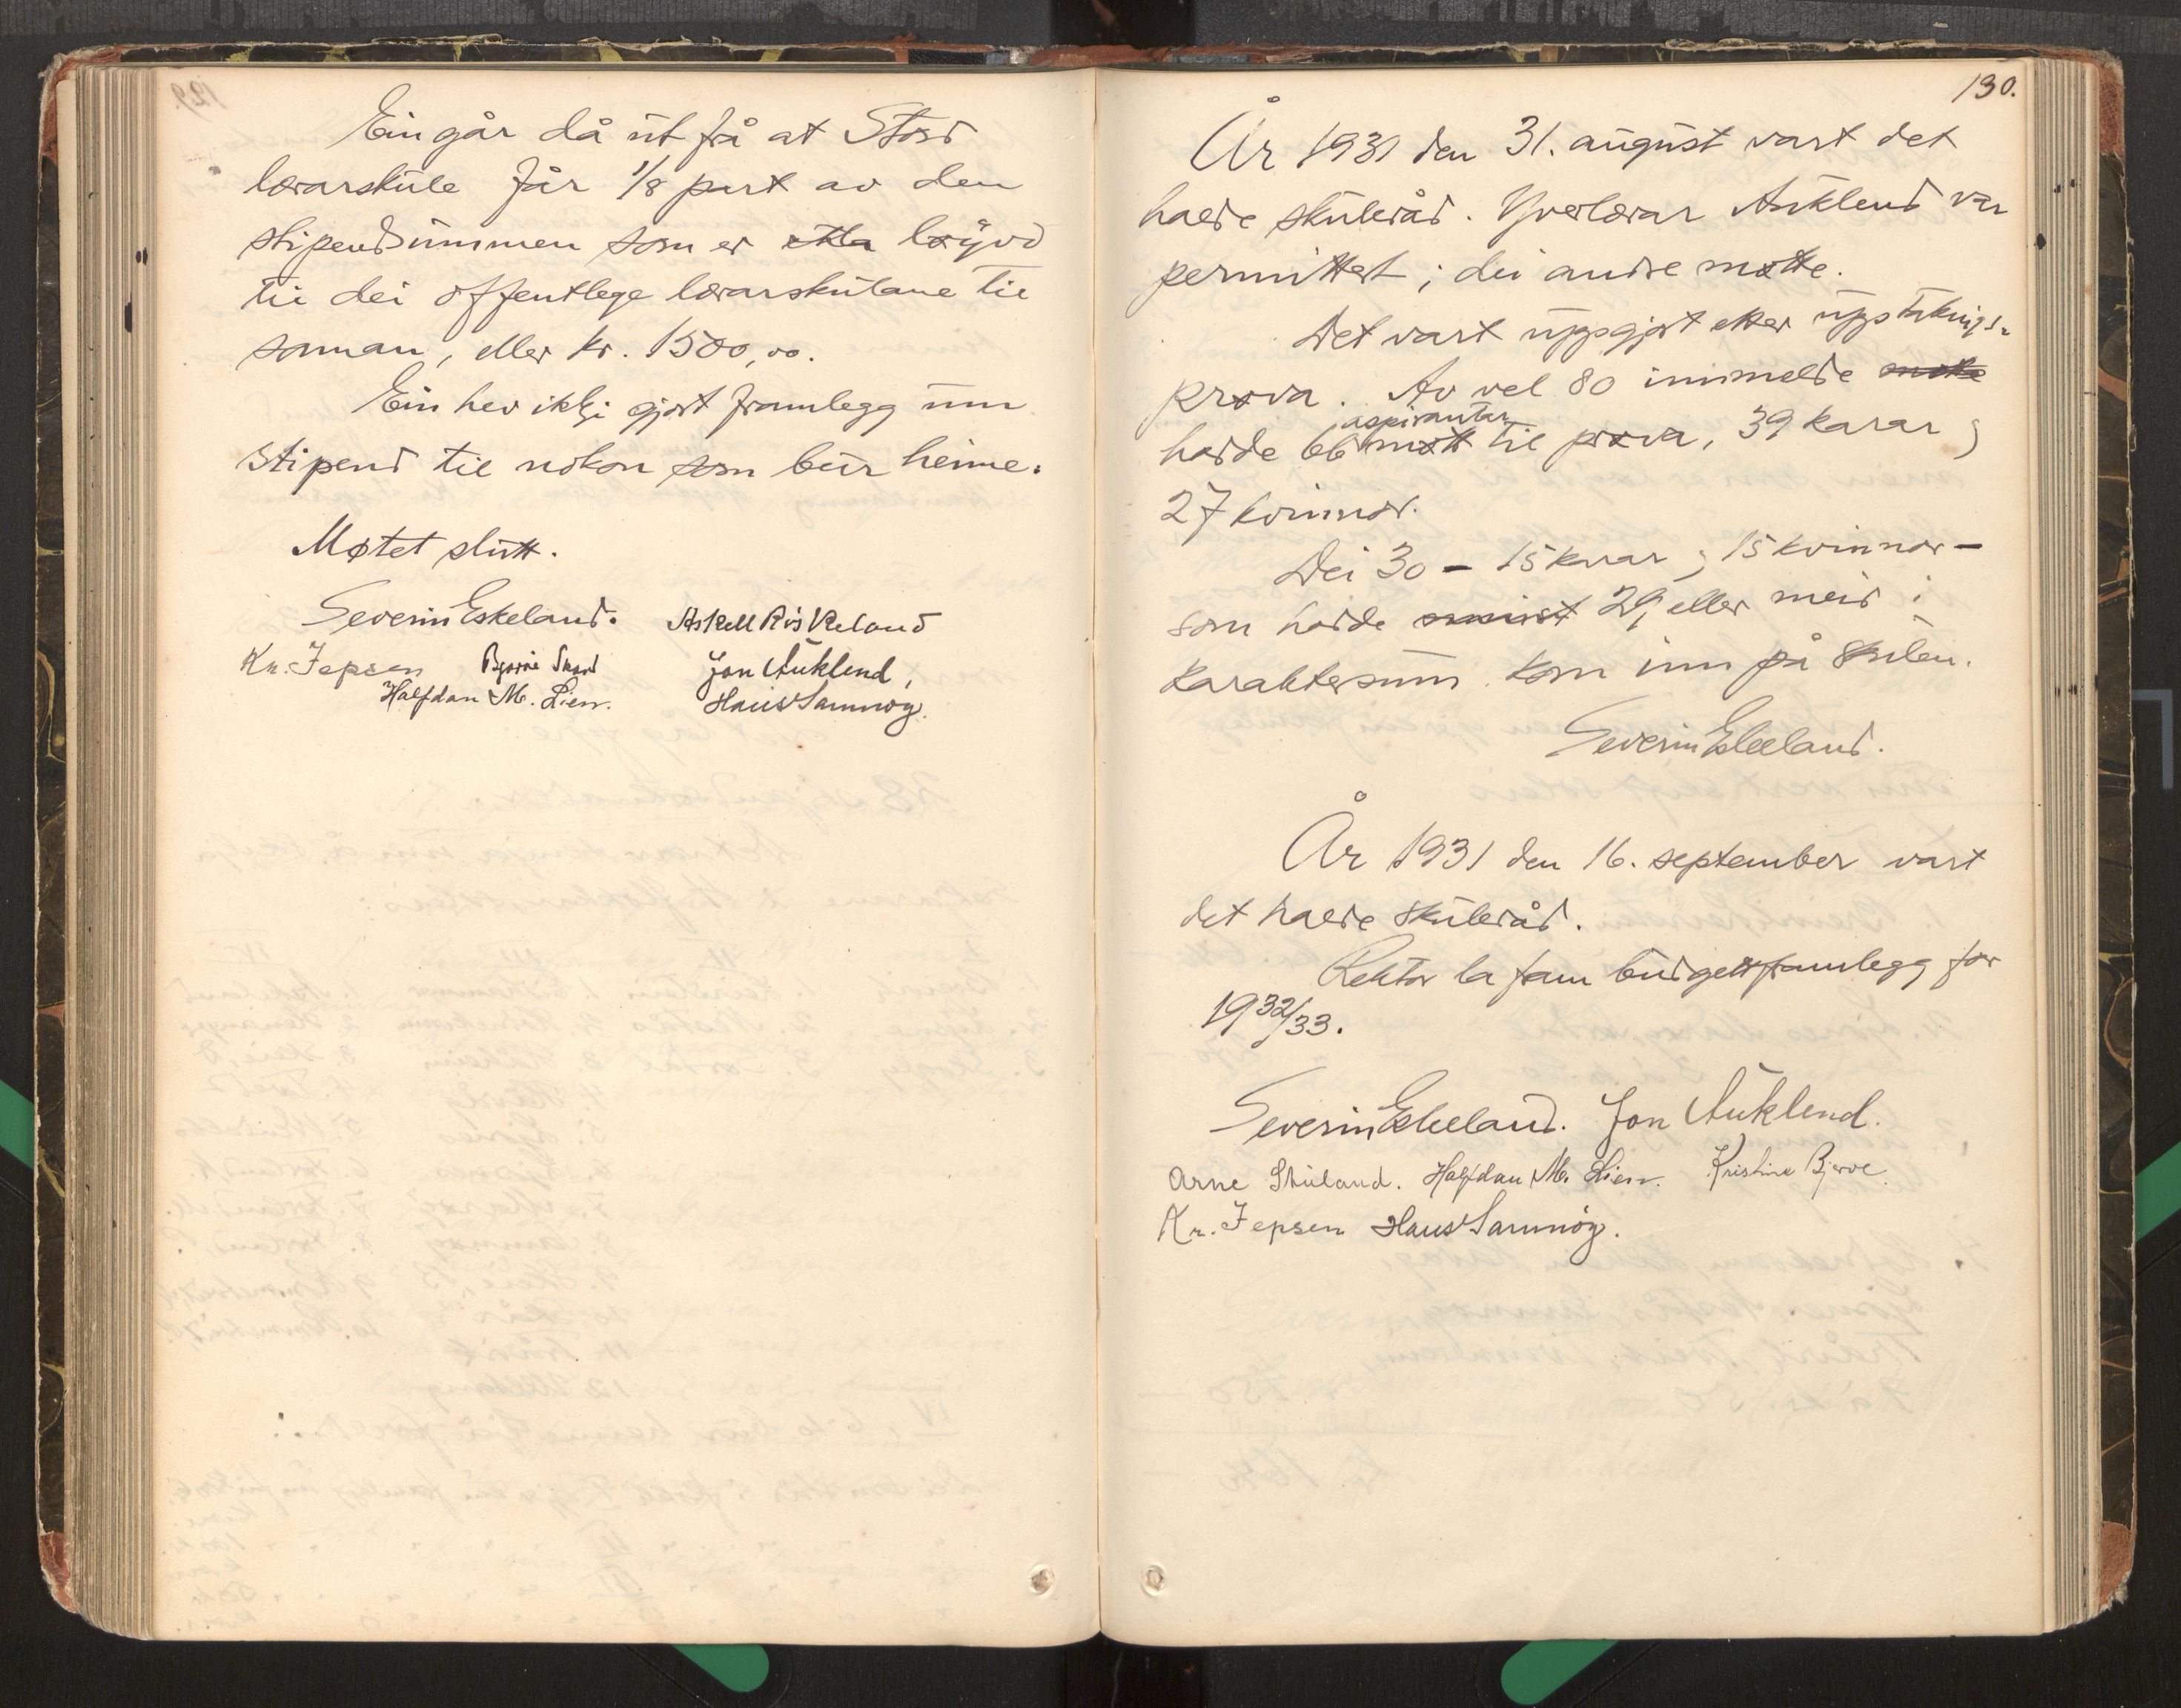 Ein går då ut frå at Stord
lærarskule får 1/8 part av den
stipendsummen som er etla løyvd
til dei offentlege lærarskulane til
saman, eller kr. 1500,00.
Ein hev ikkje gjort framlegg um
stipend til nokon som bur heime.
Møtet slutt.
Severin Eskeland. Askell Røskeland
Kr. Jepsen Bjarne Jon Auklend,
Halfdan M. Lien. Haus Samnøy.
130.
År 1931 den 31. august vart det
halde skuleråd. Yverlærar Auklend var
permittert; dei andre møtte.
Det vart uppgjort etter upptakings-
prøva. Av vel 80 innmelde møtte
aspirantar
hadde 66 møtt til prøva, 39 karar og
27 kvinnor.
Dei 30 – 15 karar og 15 kvinnor –
som hadde minst 29 eller meir i
karaktersum kom inn på skulen.
Severin Eskeland.
År 1931 den 16. september vart
det halde skuleråd.
Rektor la fram budgettframlegg for
1932/33.
Severin Eskeland. Jon Auklend.
Arne Stuland. Halfdan M. Lien. Kristine Bjerve.
Kr. Jepsen Haus Samnøy.